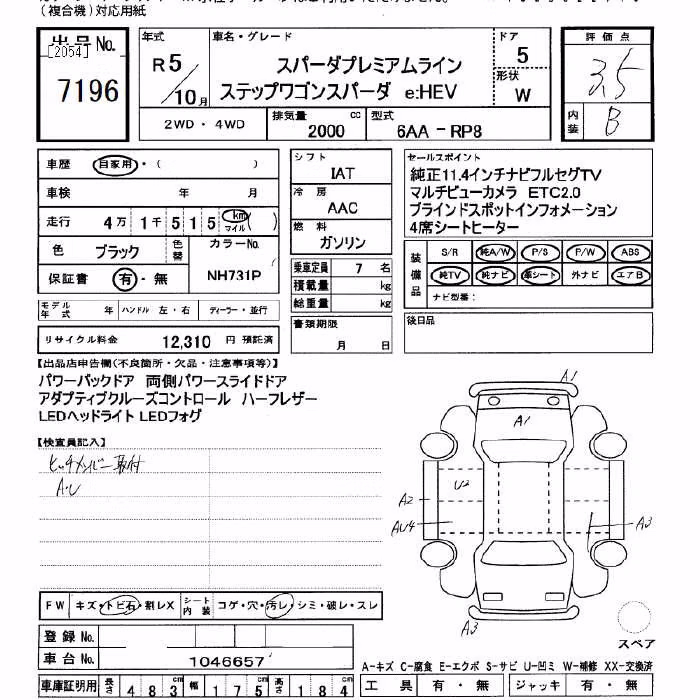 (複合機)対応用紙
出品No.
[2054]
7196
年式
R5/10月
車名・グレード
スパーダプレミアムライン
ステップワゴンスパーダ e:HEV
ドア
5
形状
W
評価点
3.5
内装
B
2WD・4WD
排気量
2000
cc
型式
6AA-RP8
車歴
自家用・( )
車検 年 月
走行 4万1千515km マイル( )
色 ブラック
色替
カラーNo.
NH731P
保証書 有・無
モデル年式 年 ハンドル 左・右 ディーラー・並行
リサイクル料金 12,310 円 預託済
シフト
IAT
冷房
AAC
燃料
ガソリン
乗車定員 7 名
積載量 kg
総重量 kg
書類期限
月 日
セールスポイント
純正11.4インチナビフルセグTV
マルチビューカメラ ETC2.0
ブラインドスポットインフォメーション
4席シートヒーター
装備品
S/R 純A/W P/S P/W ABS
純TV 純ナビ 革シート 外ナビ エアB
ナビ型番:
後日品
【出品店申告欄(不良箇所・欠品・注意事項等)】
パワーバックドア 両側パワースライドドア
アダプティブクルーズコントロール ハーフレザー
LEDヘッドライト LEDフォグ
【検査員記入】
ヒッチメンバー取付
A・U
A1
A1
U2
A2
AU4
A3
A3
スペア
FW キズ・トビ石・割レX
シート内装 コゲ・穴・汚レ・シミ・破レ・スレ
登録No.
車台No. 1046657
A-キズ C-腐食 E-エクボ S-サビ U-凹ミ W-補修 XX-交換済
車庫証明用 長さ 483cm 幅 175cm 高さ 184cm
工具 有・無 ジャッキ 有・無